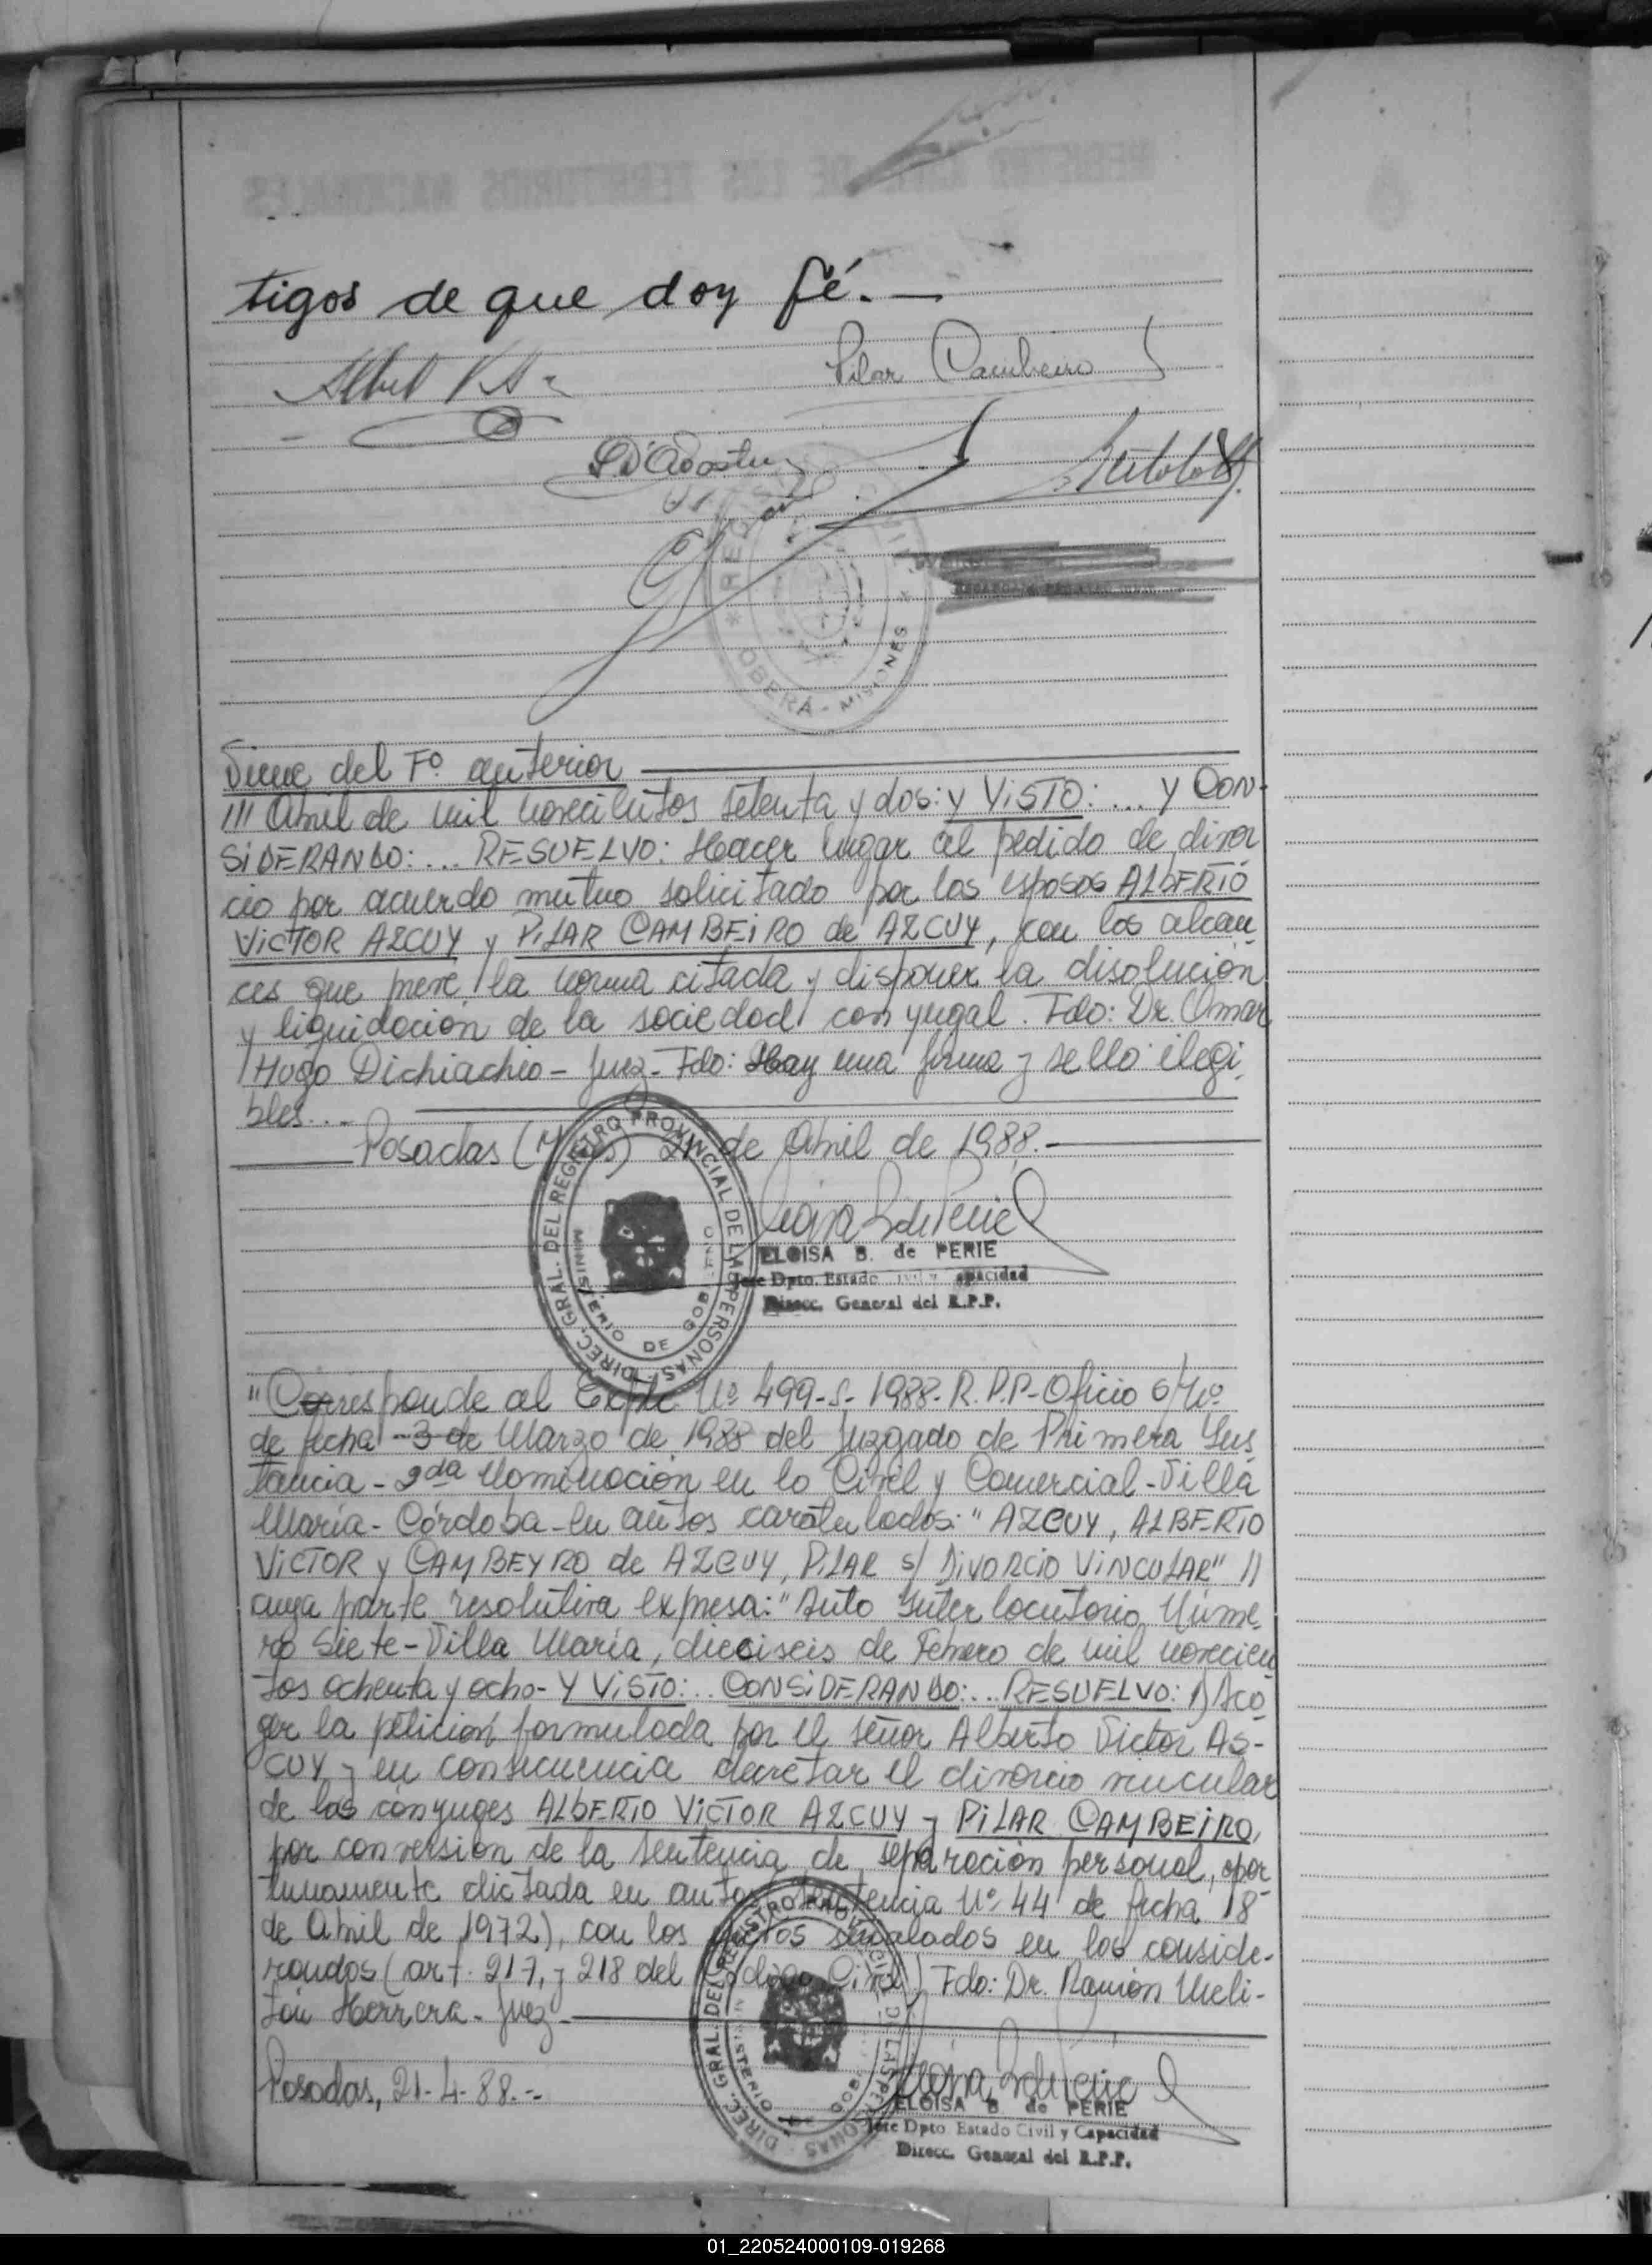 tigos de que doy fé.—
Pilar Cambeiro
REGISTRO CIVIL * OBERÁ - MISIONES *
Viene del Fº anterior
/// Abril de mil novecientos setenta y dos: y ViSTO: ... y CON-
SiDERANDO: ... RESUELVO: Hacer lugar al pedido de divor
cio por acuerdo mutuo solicitado por los esposos ALbERTO
ViCTOR AZCUY y PiLAR CAMBEiRO de AZCUY, con los alcan
ces que prevé la norma citada y disponer la disolución
y liquidación de la sociedad conyugal. Fdo: Dr. Omar
Hugo Dichiachio - Juez - Fdo: Hay una firma y sello ilegi
bles...-
Posadas (Mnes) 21 de Abril de 1988.-
DIREC. GRAL. DEL REGISTRO PROVINCIAL DE LAS PERSONAS - MINISTERIO DE GOB.
ELOISA B. de PERIE
Jefe Dpto. Estado Civil y Capacidad
Direcc. General del R.P.P.
"Corresponde al Expte Nº 499-S-1988-R.P.P-Oficio s/Nº
de fecha 3 de Marzo de 1988 del Juzgado de Primera Ins
tancia - 2da Nominación en lo Civil y Comercial - Villa
María - Córdoba - en autos caratulados: "AZCUY, ALBERTO
ViCTOR y CAMBEYRO de AZCUY, PiLAR s/ DiVORCiO ViNCULAR" //
cuya parte resolutiva expresa: "Auto Interlocutorio Núme
ro Siete - Villa María, dieciseis de Febrero de mil novecien
tos ochenta y ocho - Y ViSTO: .. CONSiDERANDO: ... RESUELVO: 1) Aco
ger la petición formulada por el señor Alberto Victor AS-
CUY y en consecuencia decretar el divorcio vincular
de los cónyuges ALbERTO ViCTOR AZCUY y PiLAR CAMBEiRO,
por conversión de la sentencia de separación personal, opor
tunamente dictada en autos (Sentencia Nº 44 de fecha 18
de Abril de 1972), con los efectos señalados en los conside-
randos (art. 217, y 218 del Código Civil) Fdo: Dr. Ramón Meli-
tón Herrera - Juez -
Posadas, 21-4-88.--
DIREC. GRAL. DEL REGISTRO PROVINCIAL DE LAS PERSONAS - MINISTERIO DE GOB.
ELOISA B. de PERIE
Jefe Dpto. Estado Civil y Capacidad
Direcc. General del R.P.P.
01_220524000109-019268